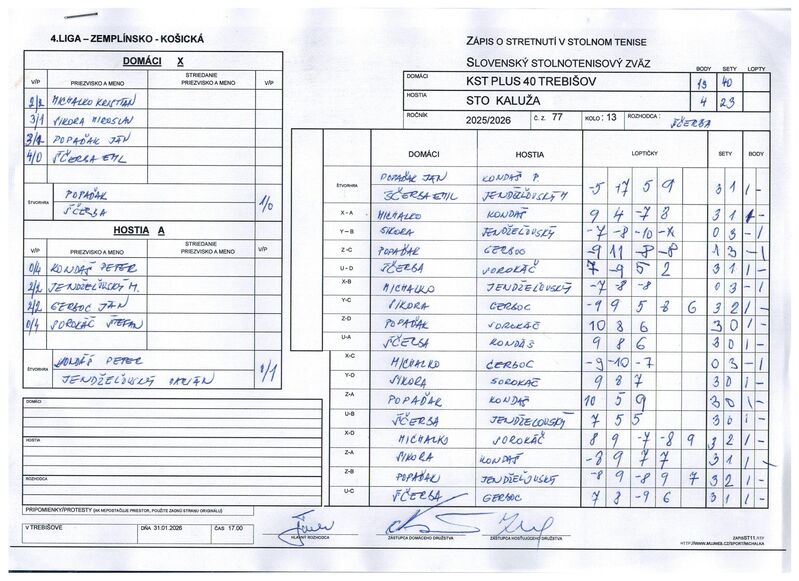 4.LIGA – ZEMPLÍNSKO - KOŠICKÁ
DOMÁCI X
V/P PRIEZVISKO A MENO STRIEDANIE PRIEZVISKO A MENO V/P
2/2 MICHALKO KRISTIAN
3/1 SIKORA MIROSLAV
3/1 POPAĎAK JÁN
4/0 ŠČERBA EMIL
ŠTVORHRA POPAĎAK ŠČERBA 1/0
HOSTIA A
V/P PRIEZVISKO A MENO STRIEDANIE PRIEZVISKO A MENO V/P
0/4 KONDAŠ PETER
2/2 JENDŽEĽOVSKÝ M.
2/2 GERBOC JÁN
0/4 SOROKÁČ ŠTEFAN
ŠTVORHRA KONDAŠ PETER
JENDŽEĽOVSKÝ MARIÁN 0/1
DOMÁCI
HOSTIA
ROZHODCA
PRIPOMIENKY/PROTESTY (AK NEPOSTAČUJE PRIESTOR, POUŽITE ZADNÚ STRANU ORIGINÁLU)
V TREBIŠOVE DŇA 31.01.2026 ČAS 17.00
ZÁPIS O STRETNUTÍ V STOLNOM TENISE
SLOVENSKÝ STOLNOTENISOVÝ ZVÄZ
BODY SETY LOPTY
DOMÁCI KST PLUS 40 TREBIŠOV 13 40
HOSTIA STO KALUŽA 4 23
ROČNÍK 2025/2026 Č. Z. 77 KOLO : 13 ROZHODCA : ŠČERBA
DOMÁCI HOSTIA LOPTIČKY SETY BODY
ŠTVORHRA POPAĎAK JÁN KONDAŠ P.
ŠČERBA EMIL JENDŽEĽOVSKÝ M -5 17 5 9 3 1 1 -
X – A MICHALKO KONDAŠ 9 4 -7 8 3 1 1 -
Y – B SIKORA JENDŽEĽOVSKÝ -7 -8 -10 0 3 - 1
Z -C POPAĎAK GERBOC -9 11 -8 -8 1 3 - 1
U - D ŠČERBA SOROKÁČ 7 -9 5 2 3 1 1 -
X-B MICHALKO JENDŽEĽOVSKÝ -7 -8 -8 0 3 - 1
Y-C SIKORA GERBOC -9 9 5 8 6 3 2 1 -
Z-D POPAĎAK SOROKÁČ 10 8 6 3 0 1 -
U-A ŠČERBA KONDAŠ 9 8 6 3 0 1 -
X-C MICHALKO GERBOC -9 -10 -7 0 3 - 1
Y-D SIKORA SOROKÁČ 9 8 7 3 0 1 -
Z-A POPAĎAK KONDAŠ 10 5 9 3 0 1 -
U-B ŠČERBA JENDŽEĽOVSKÝ 7 5 5 3 0 1 -
X-D MICHALKO SOROKÁČ 8 9 -7 -8 9 3 2 1 -
Z-A SIKORA KONDAŠ -8 9 7 7 3 1 1 -
Z-B POPAĎAK JENDŽEĽOVSKÝ -8 9 -8 9 7 3 2 1 -
U-C ŠČERBA GERBOC 7 8 -9 6 3 1 1 -
HLAVNÝ ROZHODCA ZÁSTUPCA DOMÁCEHO DRUŽSTVA ZÁSTUPCA HOSŤUJÚCEHO DRUŽSTVA